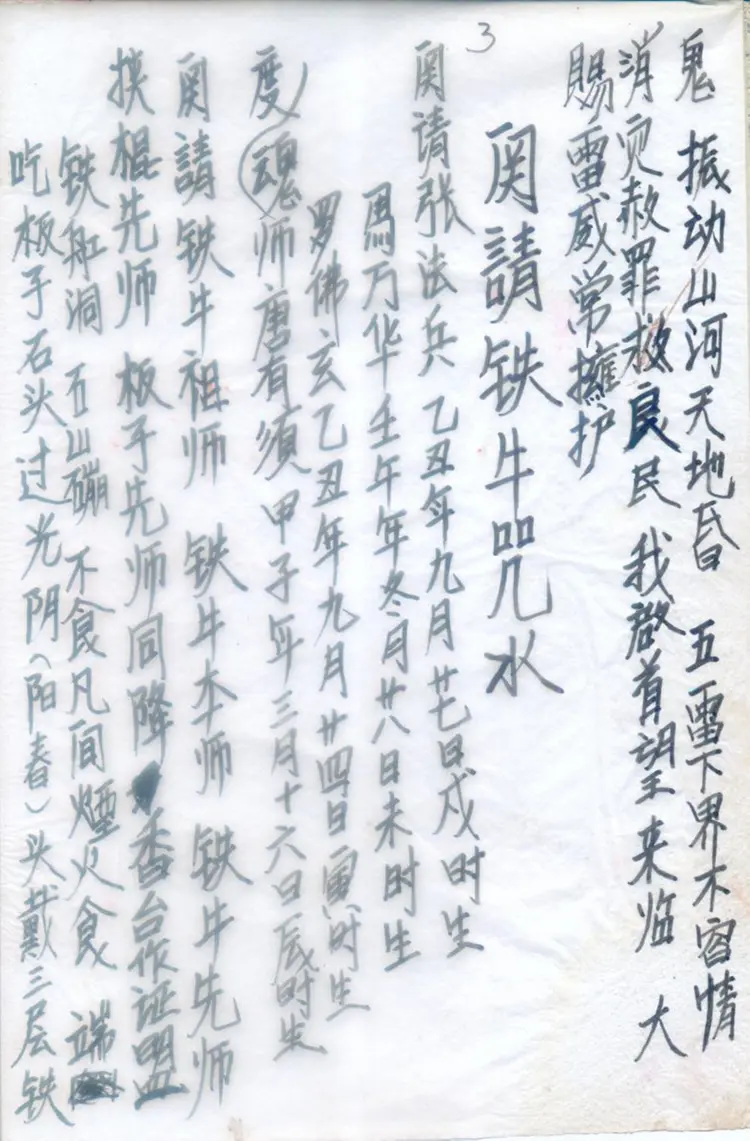 鬼 振动山河天地昏 五雷下界不容情
消灾赦罪救良民 我啟首望来临 大
賜雷威常擁护
3
関請铁牛咒水
関请张法兵 乙丑年九月廿七日戌时生
馬万华壬午年冬月廿八日未时生
罗佛玄乙丑年九月廿四日寅时生
度(魂师唐有須 甲子年三月十六日辰时生
関請铁牛祖师 铁牛本师 铁牛先师
挨棍先师 板子先师同降 香台作证盟
铁船洞 五山磞 不食凡间煙火食 端
吃板子石头过光阴(阳春)头戴三层铁